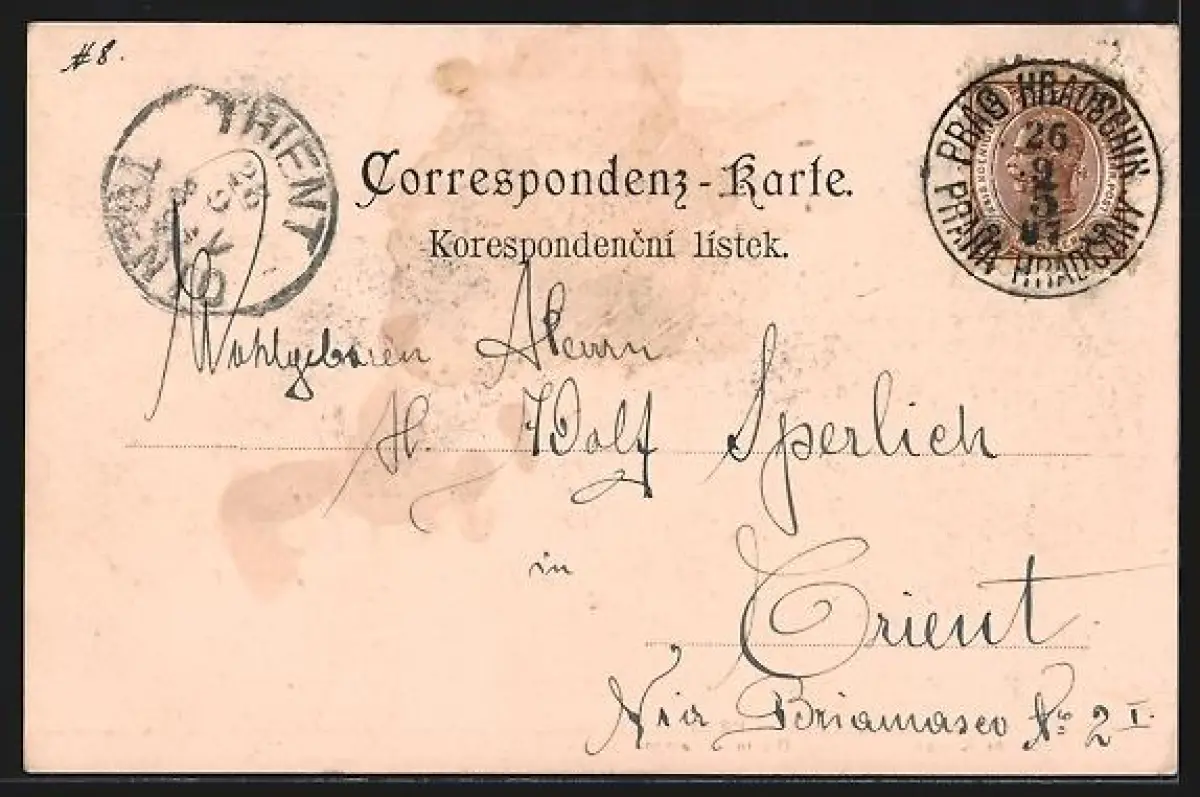 #8.
TRIENT
TRENTO
28
PRAG HRADSCHIN
26
9
5
97
PRAHA HRADČANY
Correspondenz-Karte.
Korespondenční lístek.
Wohlgeboren Herrn
H. Wolf Sperlich
in
Trient
Via Briamasco No 2 I.